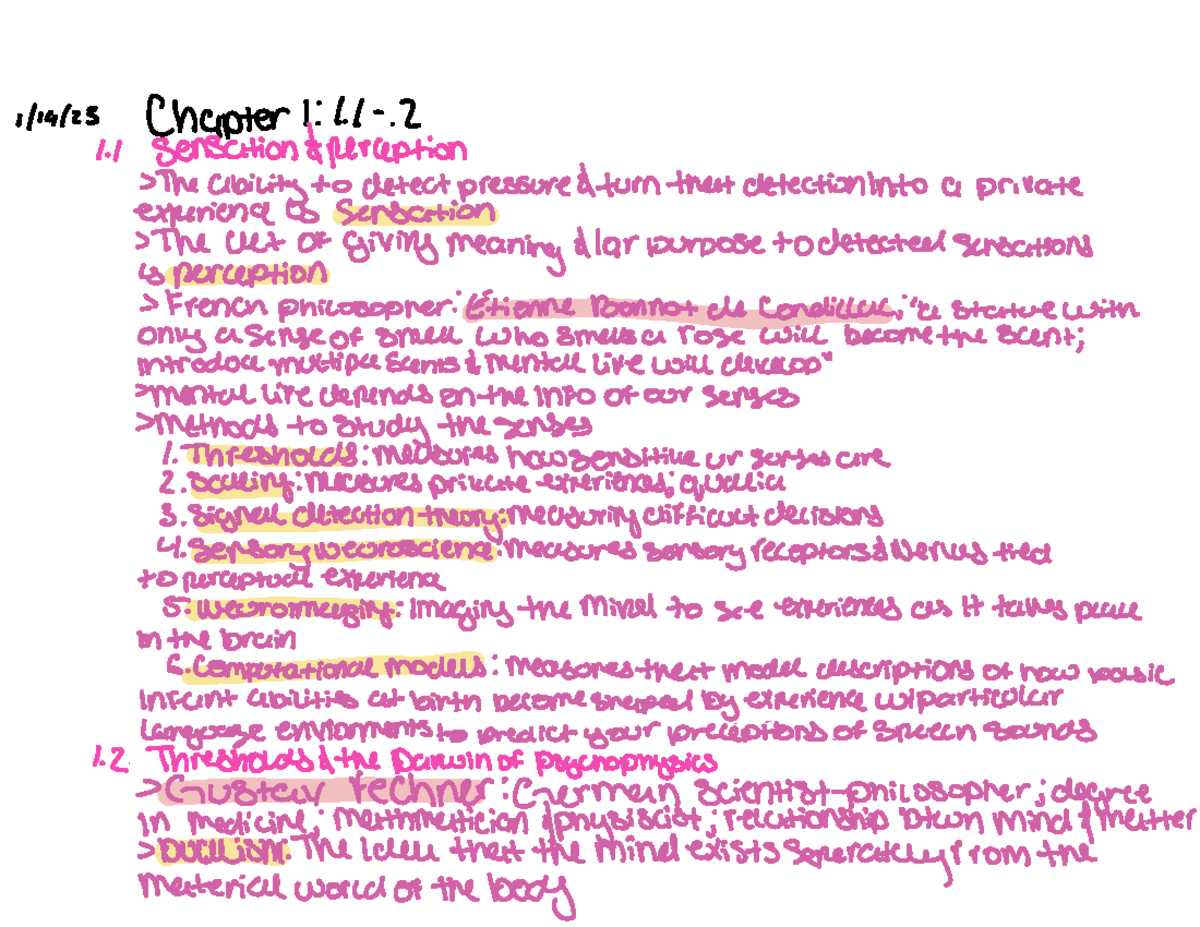 1/14/25 Chapter 1: 1.1-.2
1.1 Sensation & perception
>The ability to detect pressure & turn that detection into a private
experience is Sensation
>The act of giving meaning &/or purpose to detected sensations
is perception
>French philosopher: Étienne Bonnot de Condillac; "a statue with
only a sense of smell who smells a rose will become the scent;
introduce multiple scents & mental life will develop"
>mental life depends on the info of our senses
>methods to study the senses
1. Thresholds: measures how sensitive ur senses are
2. Scaling: measures private experiences; qualia
3. Signal detection theory: measuring difficult decisions
4. Sensory neuroscience: measures sensory receptors & nerves tied
to perceptual experience
5. Neuroimaging: Imaging the mind to see experiences as it takes place
in the brain
6. Computational models: measures that model descriptions of how basic
infant abilities at birth become shaped by experience w/particular
language environments to predict your preceptions of speech sounds
1.2 Thresholds & the Darwin of Psychophysics
>Gustav Fechner: German scientist-philosopher; degree
in medicine; mathmetician & physiscist; relationship btwn mind & matter
>Dualism: The idea that the mind exists seperately from the
material world of the body